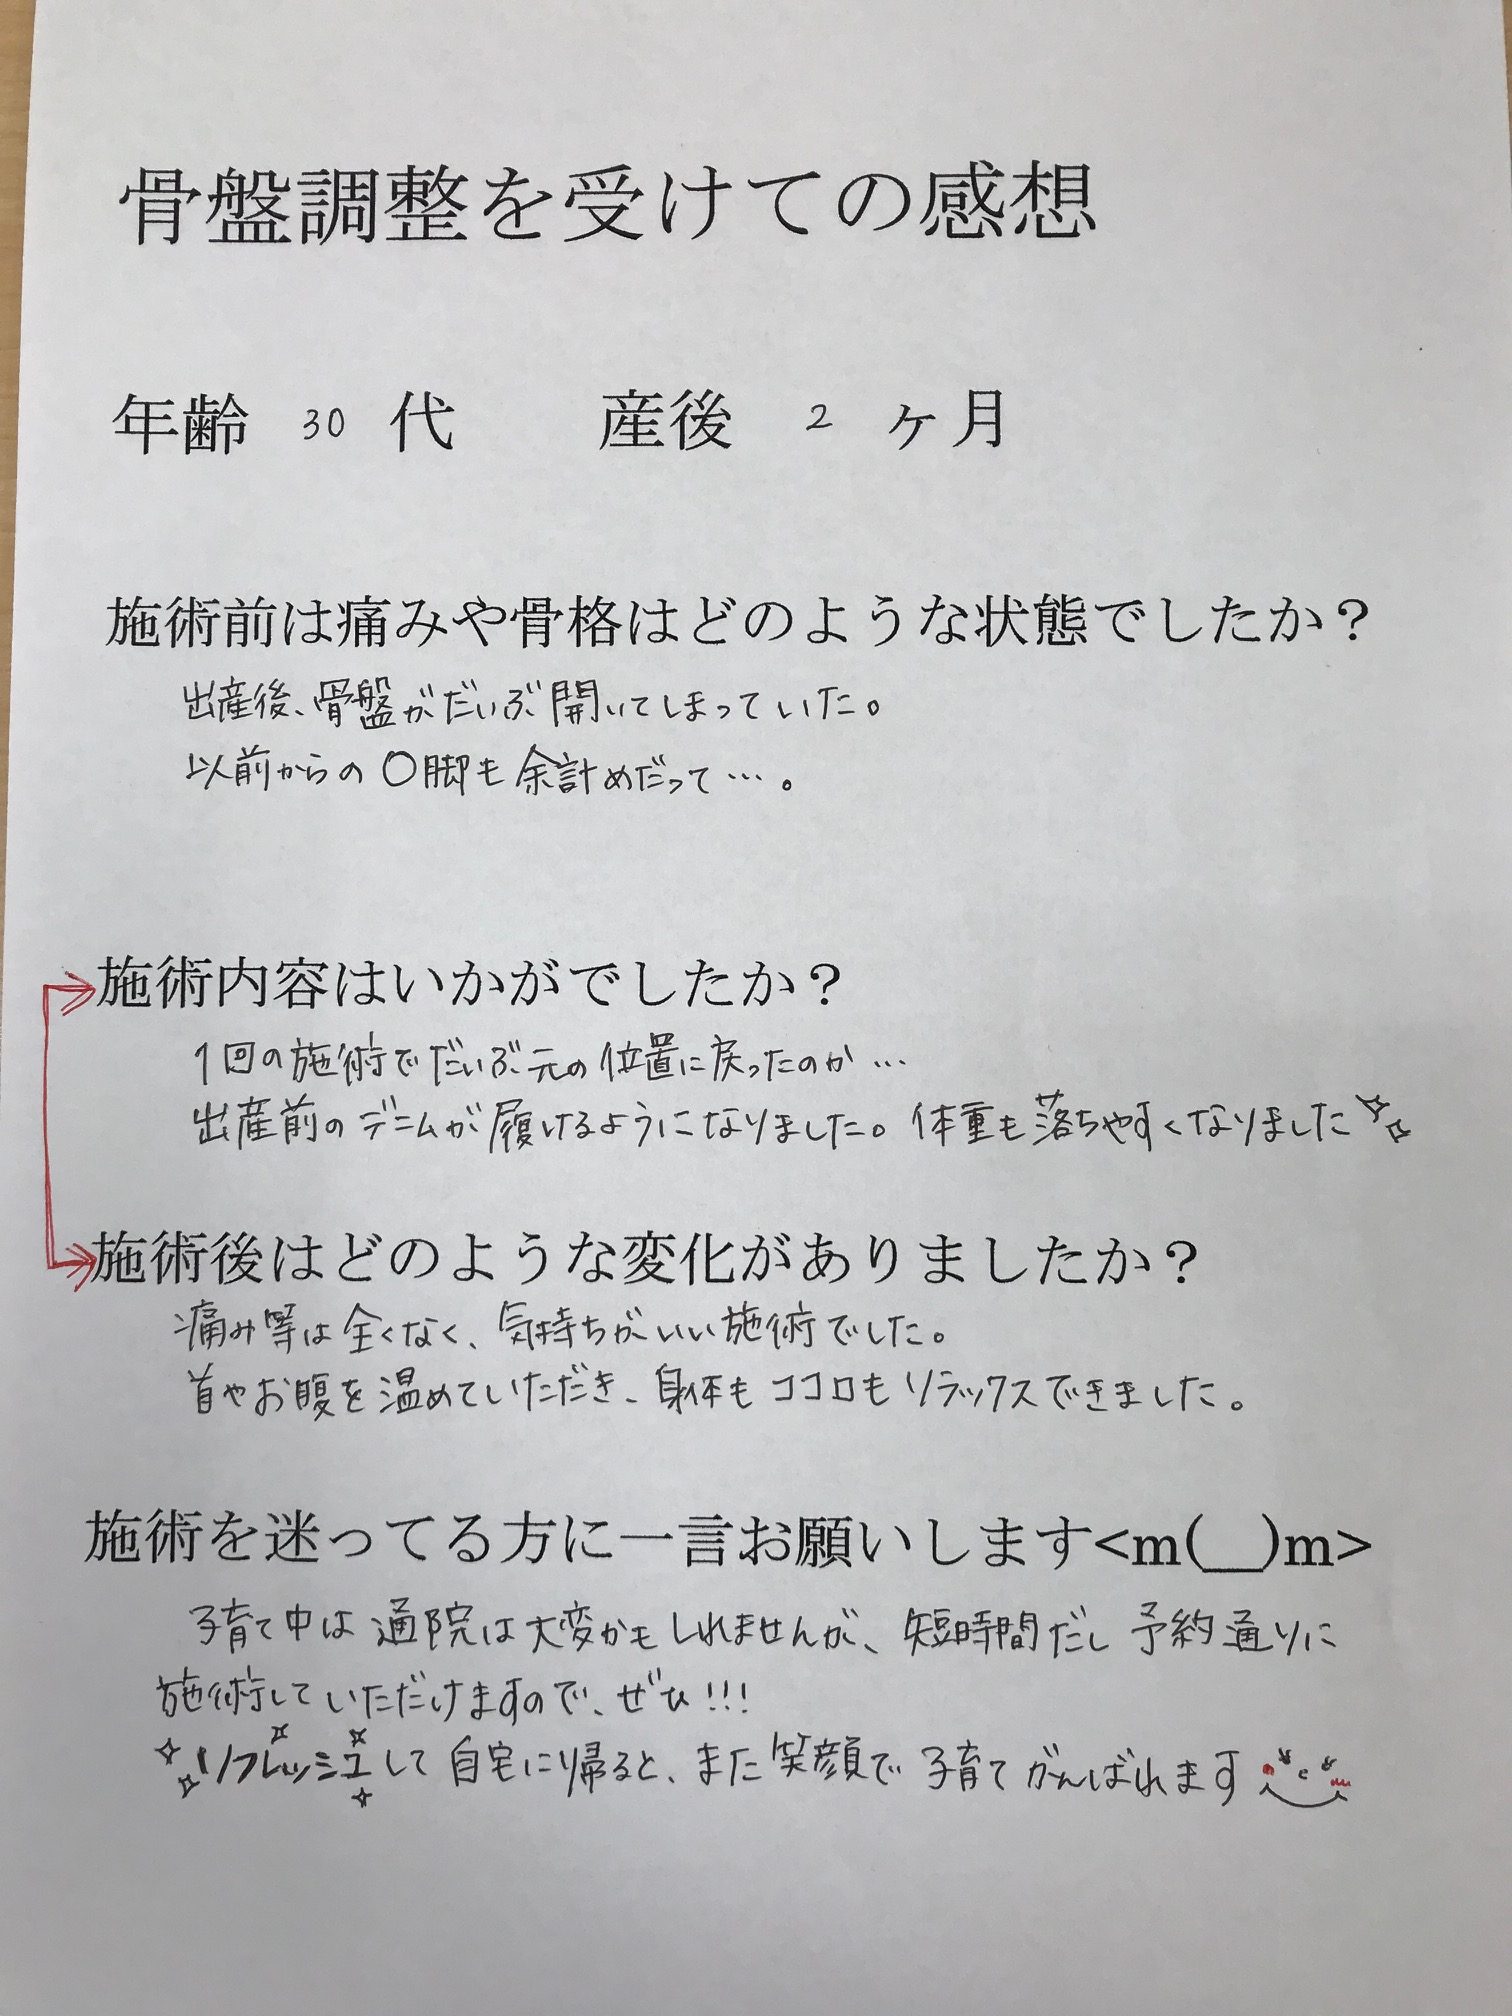 骨盤調整を受けての感想
年齢 30 代 産後 2 ヶ月
施術前は痛みや骨格はどのような状態でしたか？
出産後、骨盤がだいぶ開いてしまっていた。
以前からのO脚も余計めだって…。
施術内容はいかがでしたか？
1回の施術でだいぶ元の位置に戻ったのか…
出産前のデニムが履けるようになりました。体重も落ちやすくなりました
施術後はどのような変化がありましたか？
痛み等は全くなく、気持ちがいい施術でした。
首やお腹を温めていただき、身体もココロもリラックスできました。
施術を迷ってる方に一言お願いします<m(__)m>
子育て中は通院は大変かもしれませんが、短時間だし予約通りに
施術していただけますので、ぜひ!!!
リフレッシュして自宅に帰ると、また笑顔で子育てがんばれます